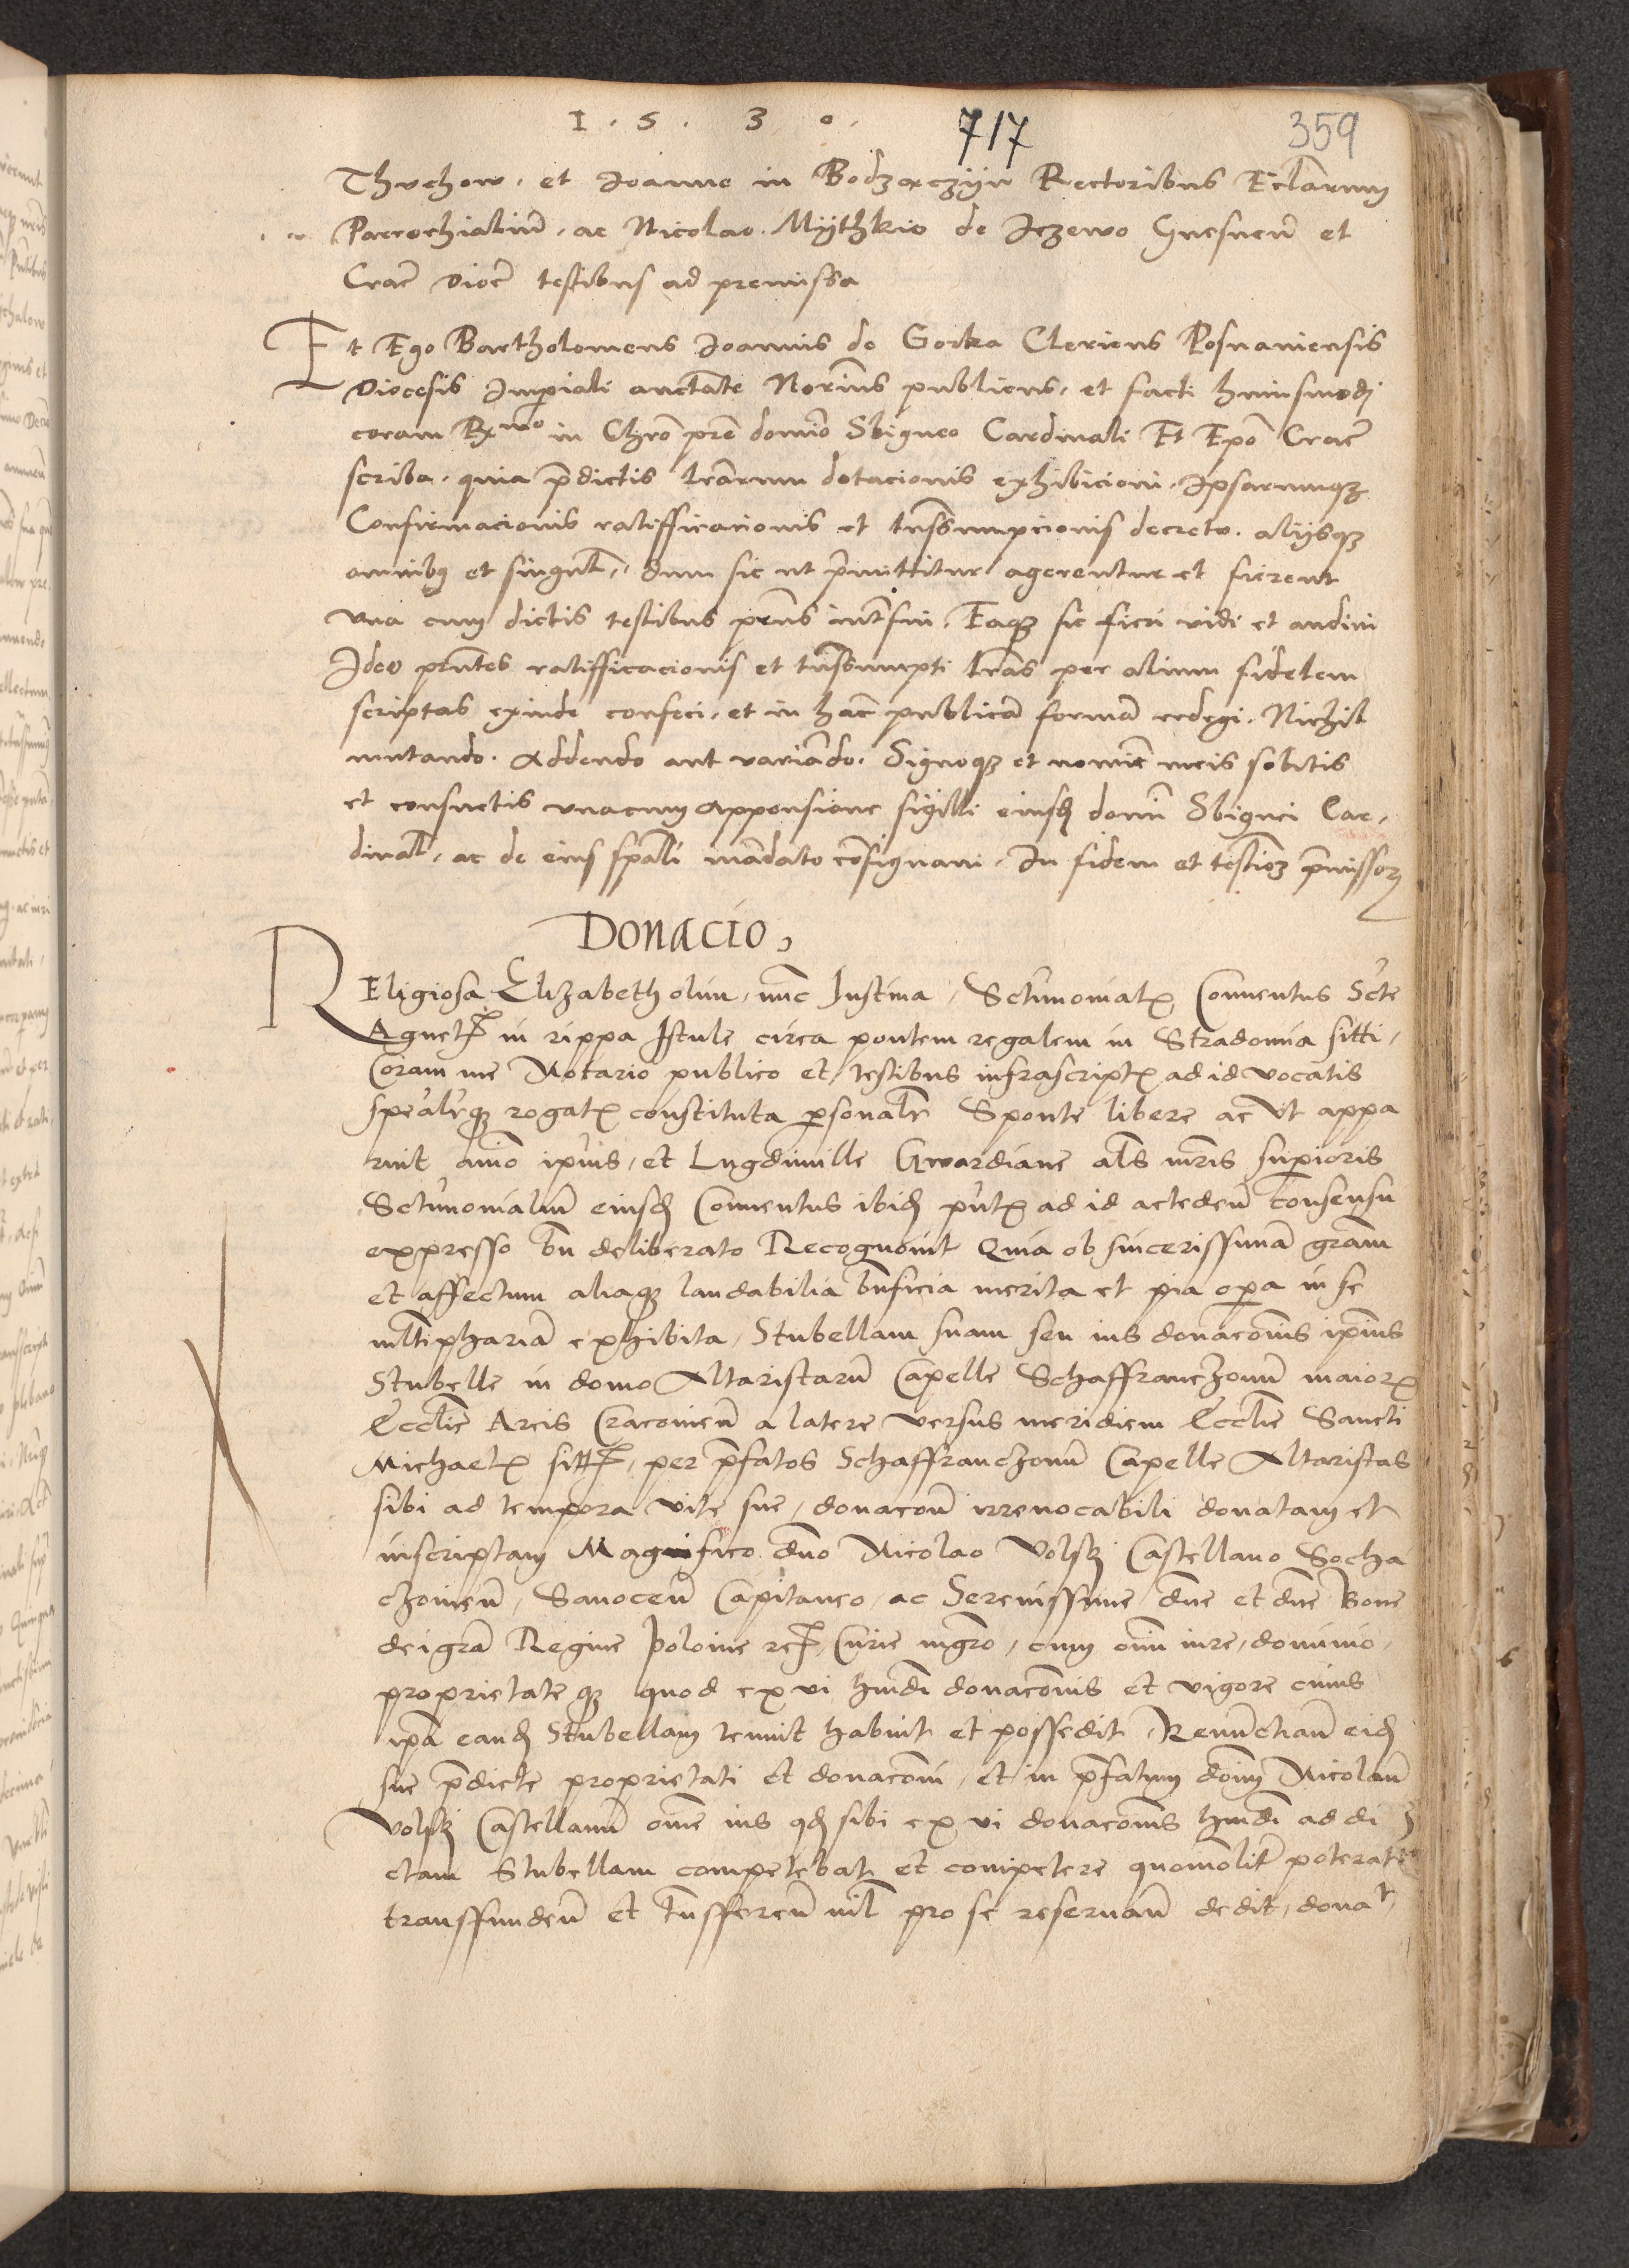 1 . 5 . 3 0 .
717
359
Thuchow . et Joanne in Bodzaczijn Rectoribus Ecl̄arum
Parrochialiū . ac Nicolao . Mijthkio de Jezewo Gnesneñ et
Crac̄ Dioc̄ testibus ad premissa
Et Ego Bartholomeus Joannis de Gorka Clericus Posnaniensis
Diocesis Imperiali auctāte Notarius publicus , et facti huiusmodj
coram Rmo in Chrō pr̄e domīo Sbigneo Cardinali Et Ep̄o Crac̄
scriba . quia p̄dictis lr̄arum dotacionis exhibicioni . Ipsarumqz
Confirmacionis ratifficacionis et trāssumpcionis decreto . alijsqz
omnibus et singul̄ , dum sic ut p̄mittitur agerentur et fierent
vna cum dictis testibus pn̄s int̄fui . Eaqz sic fieri vidi et audiui
Ideo pn̄tes ratifficacionis et trāssumpti lr̄as per alium fidelem
scriptas exinde confeci . et in hāc publicā formā redegi . Nichil
mutando . Addendo aut variādo . Signoqz et nomīe meis solitis
et consuetis vnacum appensione sigilli eiusd domī Sbignei Car ,
dinal̄ , ac de eius sp̄ali mādato cōsignaui . In fidem et testīoz p̄missorz
Donacio ,
REligiosa Elizabeth olim , nūc Justina , Sctimonial̄ Conuentus Scte
Agnet̄ in rippa Istule circa pontem regalem in Stradomia sitti ,
Coram me Notario publico et testibus infrascript̄ ad id vocatis
specialr̄qz rogat̄ constituta p̄sonalr̄ Sponte libere ac vt appa
ruit aīo ip̄ius , et Lugdimille Gwardiane al̄s mr̄is superioris
Sctimonialiū eiusd Conuentus ibid pn̄t̄ ad id accedeñ consensu
expresso bn̄ deliberato Recognouit Quia ob sincerissimā grām
et affectum aliaqz laudabilia bn̄ficia merita et pia opera in se
ml̄tiphariā exhibita , Stubellam suam seu ius donacōnis ip̄ius
Stubelle in domo Altaristarū Capelle Schaffranczonū maior̄
Eccl̄ie Arcis Cracouieñ a latere versus meridiem Eccl̄ie Sancti
Michael̄ sitt̄ , per p̄fatos Schaffranczonū Capelle Altaristas
sibi ad tempora vite sue , donacōñ irreuocabili donatam et
inscriptam Magnifico dn̄o Nicolao Volsk Castellano Socha
czouieñ , Sanoceñ Capitaneo , ac Serenissime dn̄e et dn̄e Bone
dei grā Regine Polonie rc̄ , Curie mgr̄o , cum oīm iure , dominio ,
proprietateqz quod ex vi hmōi donacōnis et vigore cuius
ip̄a eand Stubellam tenuit habuit et possedit , Renūctiañ eid
sue p̄dicte proprietati et donacōni , et in p̄fatum dōīm Nicolaū
Volsk Castellanū oīne ius qd sibi ex vi donacōnis hmōi ad di
ctam Stubellam competebat et competere quomōlit̄ poterat
transffundeñ et trāsffereñ nil̄ pro se reseruañ dedit , donat ,